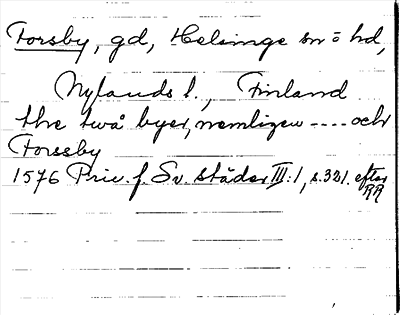 Forsby, gd, Helsinge sn o hd,
Nylands l., Finland
the twå byer, nemligen ---- och
Forssby
1576 Priv. f. Sv. städer III:1, s. 321. efter
RR